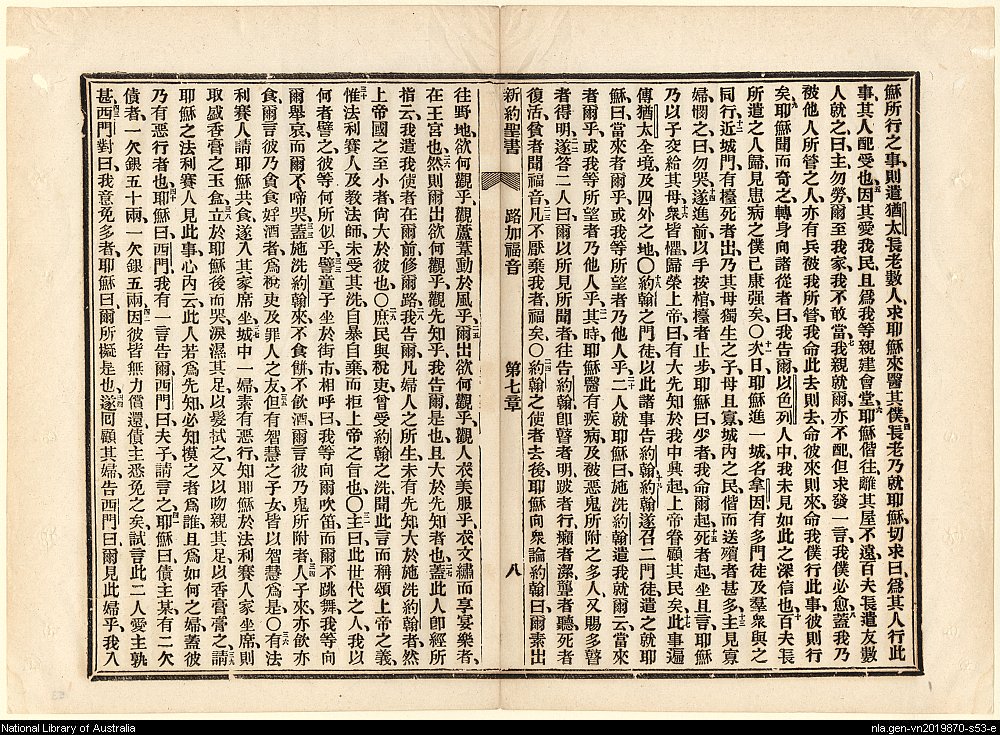 穌所行之事、則遣猶太長老數人、求耶穌來醫其僕、長老乃就耶穌、切求曰、爲其人行此
事、其人配受也、五因其愛我民、且爲我等親建會堂、六耶穌偕往、離其屋不遠、百夫長遣友數
人就之曰、主勿勞、爾至我家、我不敢當、七我親就爾、亦不配、但求發一言、我僕必愈、八蓋我乃
被他人所管之人、亦有兵被我所管、我命此去則去、命彼來則來、命我僕行此事、彼則行
矣、九耶穌聞而奇之、轉身向諸從者曰、我告爾、以色列人中、我未見如此之深信也、十百夫長
所遣之人歸、見患病之僕已康强矣、〇十一次日、耶穌進一城、名拿因、有多門徒及羣衆與之
同行、十二近城門、有檯死者出、乃其母獨生之子、母且寡、城内之民、偕而送殯者甚多、十三主見寡
婦憫之曰、勿哭、十四遂進前、以手按棺、檯者止步、耶穌曰、少者、我命爾起、十五死者起坐且言、耶穌
乃以子交給其母、十六衆皆懼、歸榮上帝曰、有大先知於我中興起、上帝眷顧其民矣、十七此事遍
傳猶太全境、及四外之地、〇十八約翰之門徒、以此諸事告約翰、十九約翰遂召二門徒、遣之就耶
穌曰、當來者爾乎、或我等所望者、乃他人乎、二十二人就耶穌曰、施洗約翰遣我就爾云、當來
者爾乎、或我等所望者、乃他人乎、二一其時耶穌醫有疾病、及被惡鬼所附之多人、又賜多瞽
者得明、二二遂答二人曰、爾以所見所聞者、往告約翰、卽瞽者明、跛者行、癩者潔、聾者聽、死者
復活、貧者聞福音、二三凡不厭棄我者福矣、〇二四約翰之使者去後、耶穌向衆論約翰曰、爾素出
新約聖書 路加福音 第七章 八
往野地、欲何觀乎、觀蘆葦動於風乎、二五爾出欲何觀乎、觀人衣美服乎、衣文繡而享宴樂者、
在王宮也、二六然則爾出欲何觀乎、觀先知乎、我告爾是也、且大於先知者也、二七蓋此人卽經所
指云、我遣我使者在爾前、修爾路、二八我告爾、凡婦人之所生、未有先知大於施洗約翰者、然
上帝國之至小者、尙大於彼也、〇二九庶民與稅吏、曾受約翰之洗、聞此言而稱頌上帝之義、
三十惟法利賽人及教法師、未受其洗、自暴自棄、而拒上帝之旨也、〇三一主曰、此世代之人、我以
何者譬之、彼等何所似乎、三二譬童子坐於街市、相呼曰、我等向爾吹笛、而爾不跳舞、我等向
爾舉哀、而爾不啼哭、三三蓋施洗約翰來、不食餅、不飲酒、爾言彼乃鬼所附者、三四人子來、亦飲亦
食、爾言彼乃貪食好酒者、爲稅吏及罪人之友、三五但有智慧之子女、皆以智慧爲是、〇三六有法
利賽人、請耶穌共食、遂入其家席坐、三七城中一婦、素有惡行、知耶穌於法利賽人家坐席、則
取盛香膏之玉盒、三八立於耶穌後而哭、淚濕其足、以髮拭之、又以吻親其足、以香膏膏之、三九請
耶穌之法利賽人見此、事心内云、此人若爲先知、必知摸之者爲誰、且爲如何之婦、蓋彼
乃有惡行者也、四十耶穌曰、西門、我有一言告爾、西門曰、夫子、請言之、四一耶穌曰、債主某、有二欠
債者、一欠銀五十兩、一欠銀五兩、四二因彼皆無力償還、債主悉免之矣、試言此二人愛主孰
甚、四三西門對曰、我意免多者、耶穌曰、爾所擬是也、四四遂回顧其婦、告西門曰、爾見此婦乎、我入
National Library of Australia
nla.gen-vn2019870-s53-e